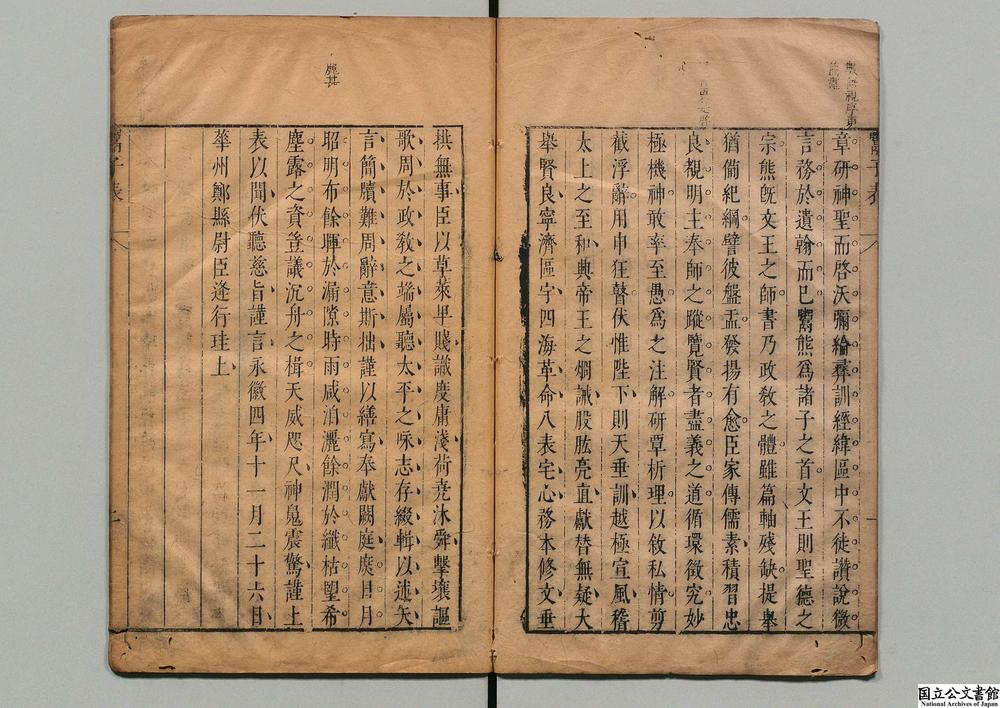 章研神聖而啓沃彌綸彝訓經緯區中不徒讚說微
言務於遺翰而已鬻熊爲諸子之首文王則聖德之
宗熊旣文王之師書乃政敎之體雖篇軸殘缺提舉
猶備紀綱譬彼盤盂發揚有愈臣家傳儒素積習忠
良覩明主奉師之蹤覽賢者盡義之道循環徵究妙
極機神敢率至愚爲之注解研覃析理以敘私情剪
截浮辭用申狂瞽伏惟陛下則天垂訓越極宣風稽
太上之至和典帝王之烱誡股肱亮直獻替無疑大
舉賢良寧濟區宇四海革命八表宅心務本修文垂
鬻子表
拱無事臣以草萊卑賤識度庸淺荷堯沐舜擊壤謳
歌周於政敎之端屬聽太平之咏志存綴輯以述矢
言簡牘難周辭意斯拙謹以繕寫奉獻闕庭庶日月
昭明布餘暉於漏隙時雨咸洎灑餘潤於纖枯望希
塵露之資豈議沉舟之楫天威咫尺神䰟震驚謹上
表以聞伏聽慈旨謹言永徽四年十一月二十六日
華州鄭縣尉臣逢行珪上
鬻子表
國立公文書館
National Archives of Japan